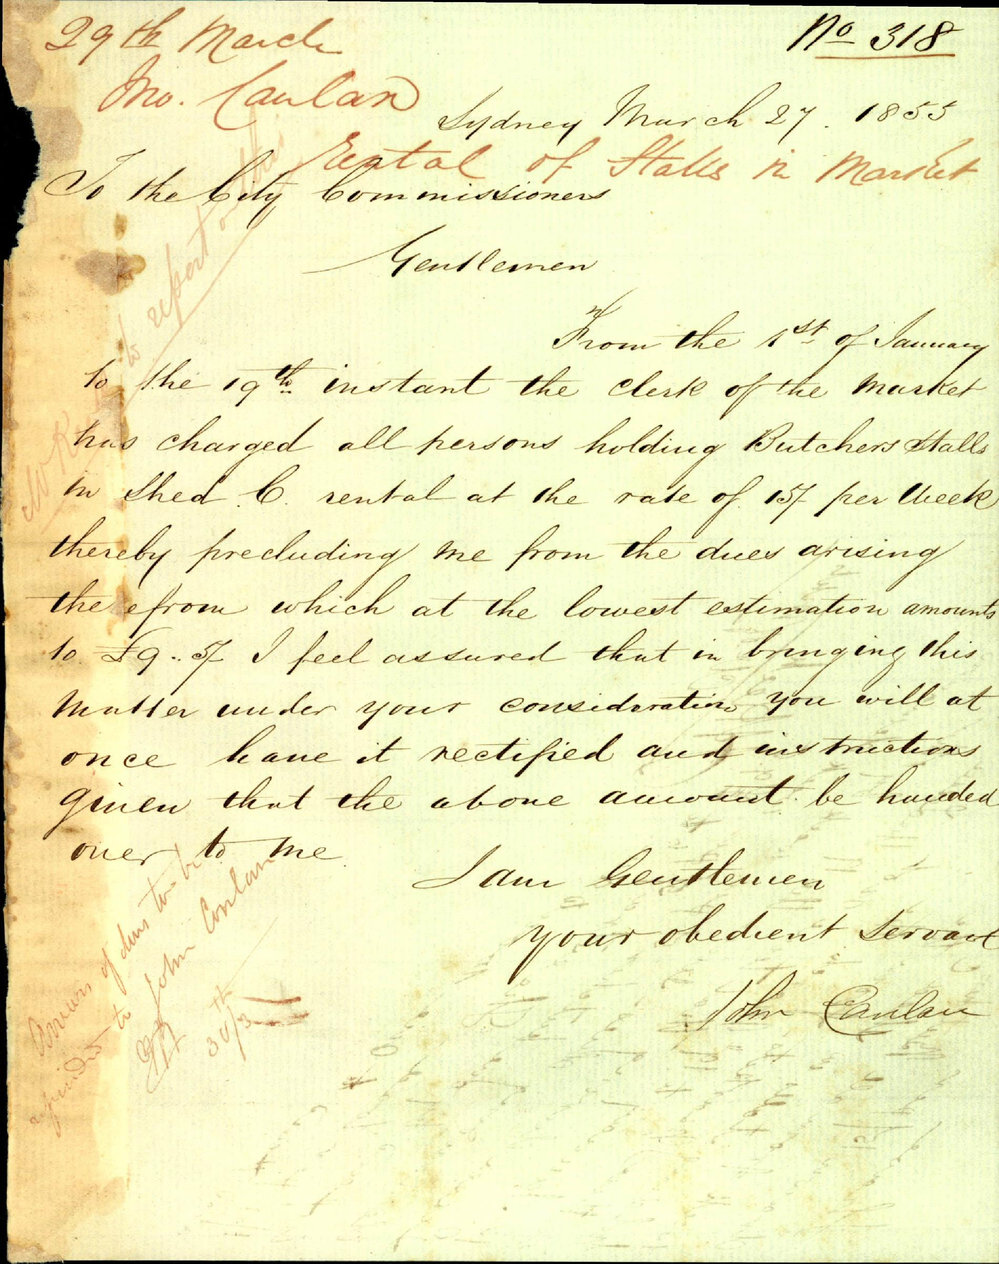 29th March
No 318
Jno. Caulan
Sydney March 27. 1855
Rental of Stalls in Market
To the City Commissioners
Gentlemen
From the 1st of January
to the 19th instant the clerk of the Market
has charged all persons holding Butchers Stalls
in Shed C. rental at the rate of 15/ per Week
thereby precluding me from the dues arising
therefrom which at the lowest estimation amounts
to £9..5/ I feel assured that in bringing this
Matter under your consideration you will at
once have it rectified and instructions
given that the above amount be handed
over to me
I am Gentlemen
your obedient Servant
John Caulan
to report on this
of dues to be
to John Conlan
30/3